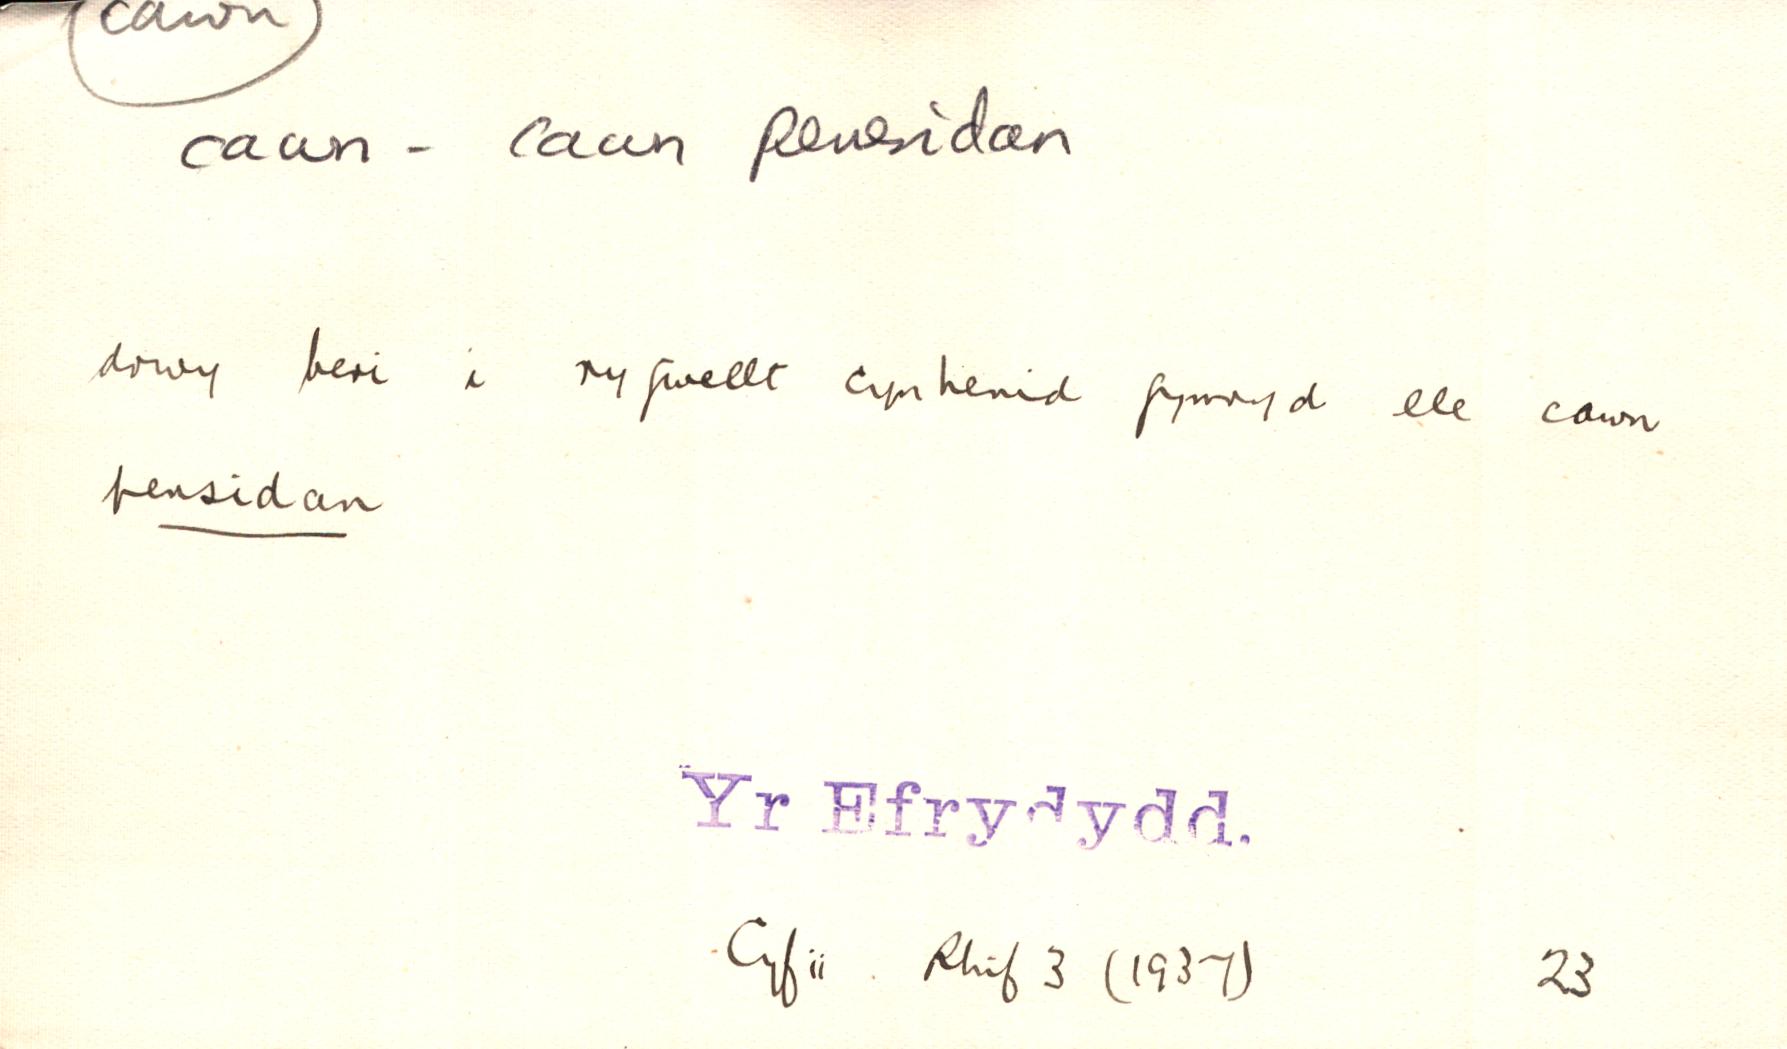 cawn
cawn - cawn pensidan
drwy beri i rygwellt cynhenid gymryd lle cawn
pensidan
Yr Efrydydd.
Cyf ii . Rhif 3 (1937) 23